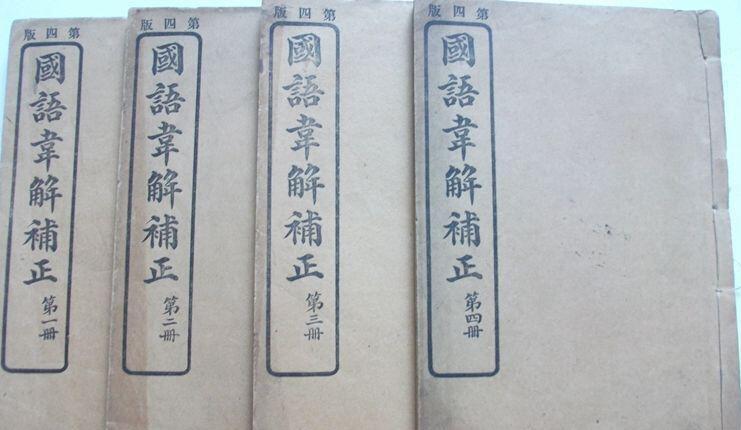 第四版
國語韋解補正
第一冊
第四版
國語韋解補正
第二冊
第四版
國語韋解補正
第三冊
第四版
國語韋解補正
第四冊